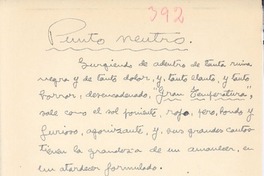 392
Punto neutro.
Surgiendo de adentro de tanta ruina
negra y de tanto dolor, y, tanto llanto, y tanto
horror, desencadenado, "Gran Temperatura",
sale como el sol poniente, rojo, pero, hondo y
furioso, agonizante, y, sus grandes cantos
tienen la grandeza de un amanecer, en
un atardecer formulado.